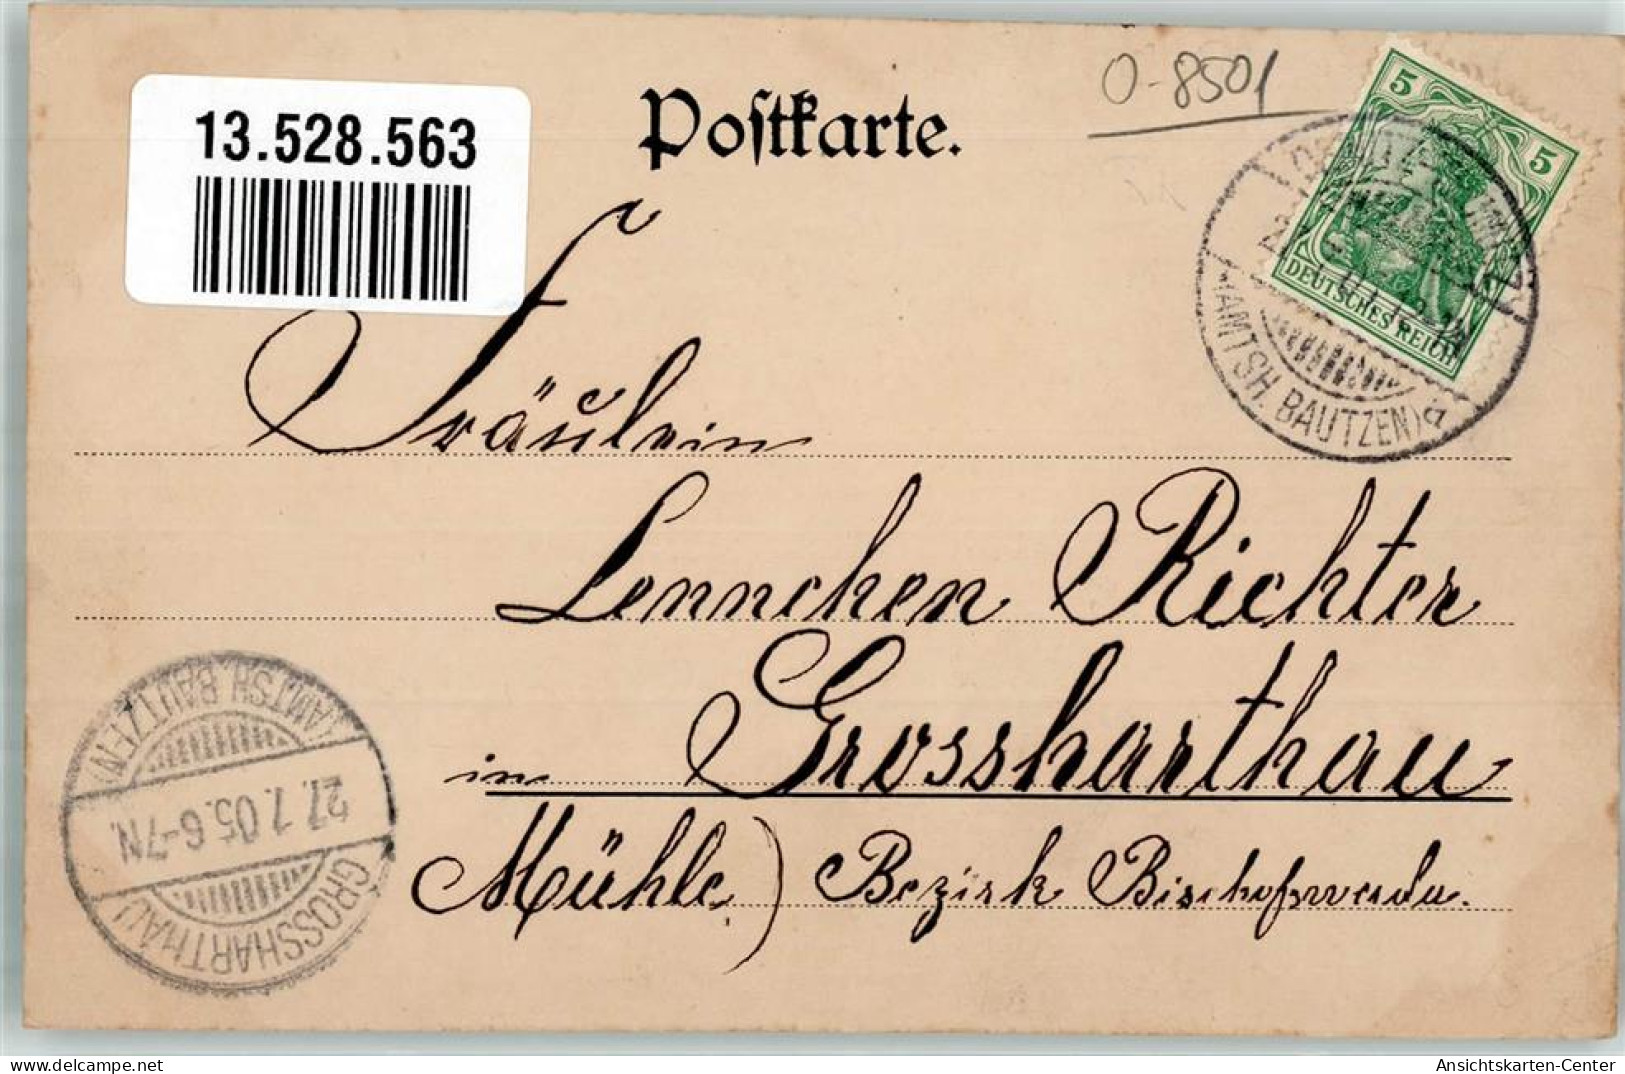 13.528.563
Postkarte.
O-8501
5 5
DEUTSCHES REICH
(AMTSH. BAUTZEN) a
Fräulein
Lennchen Richter
in Grossharthau
Mühle) Bezirk Bischofswerda.
(AMTSH. BAUTZEN)
27.7.05.6-7N.
GROSSHARTHAU
Ansichtskarten-Center